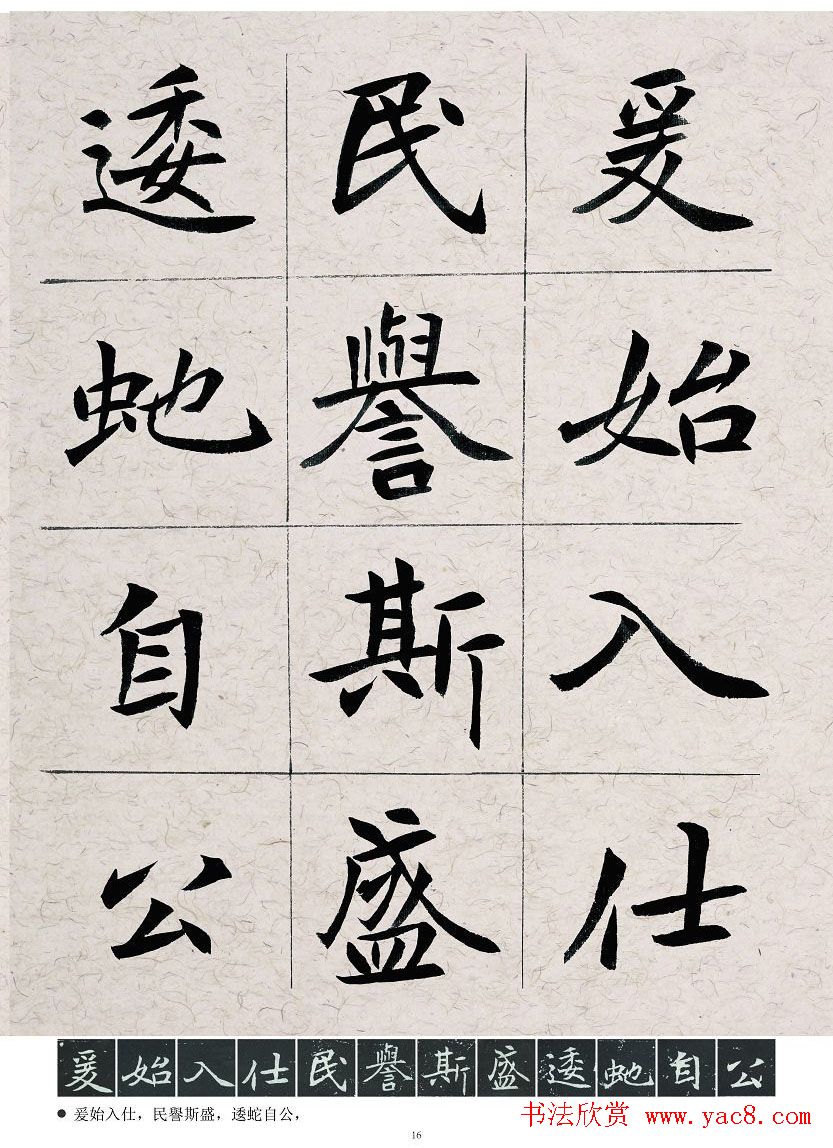 爰始入仕
民譽斯盛
逶虵自公
爰始入仕民譽斯盛逶虵自公
● 爰始入仕，民譽斯盛，逶蛇自公，
书法欣赏 www.yac8.com
16